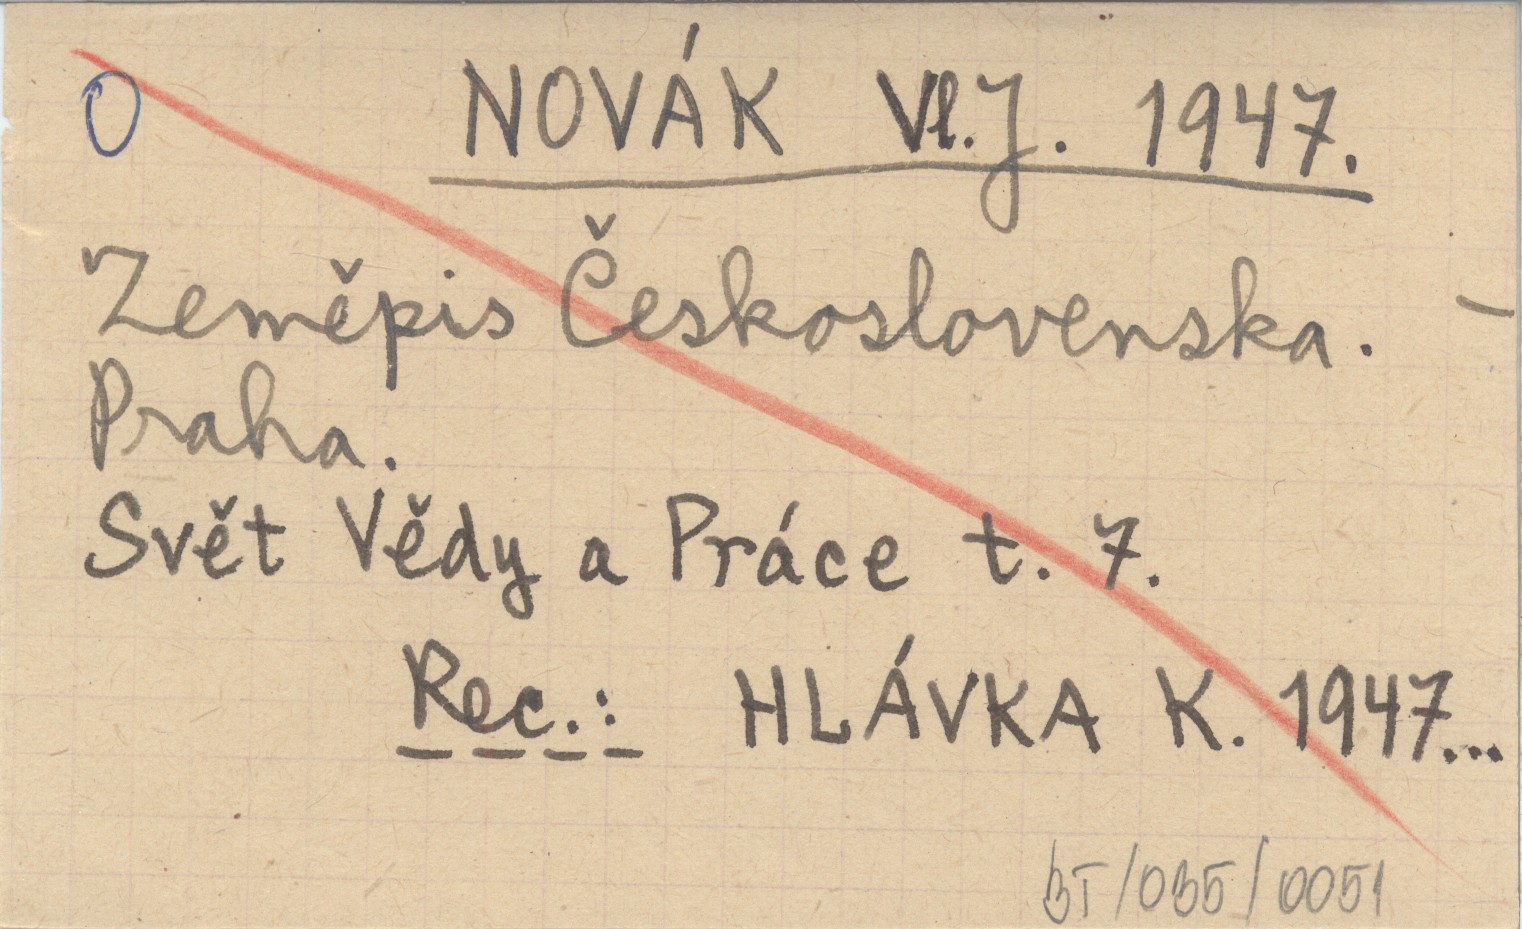 O NOVÁK Vl. J. 1947.
Zeměpis Československa. -
Praha.
Svět Vědy a Práce t. 7.
Rec.: HLÁVKA K. 1947...
BT/035/0051